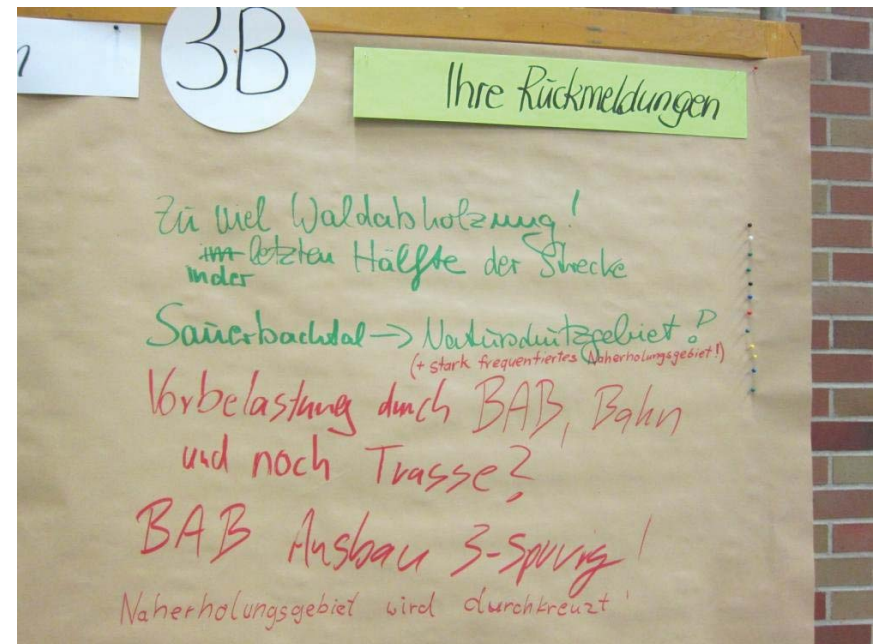 3B
Ihre Rückmeldungen
Zu viel Waldabholzung!
im letzten Hälfte der Strecke
in der
Sauerbachtal -> Naturschutzgebiet?
(+ stark frequentiertes Naherholungsgebiet!)
Vorbelastung durch BAB, Bahn
und noch Trasse?
BAB Ausbau 3-Spurig!
Naherholungsgebiet wird durchkreuzt!